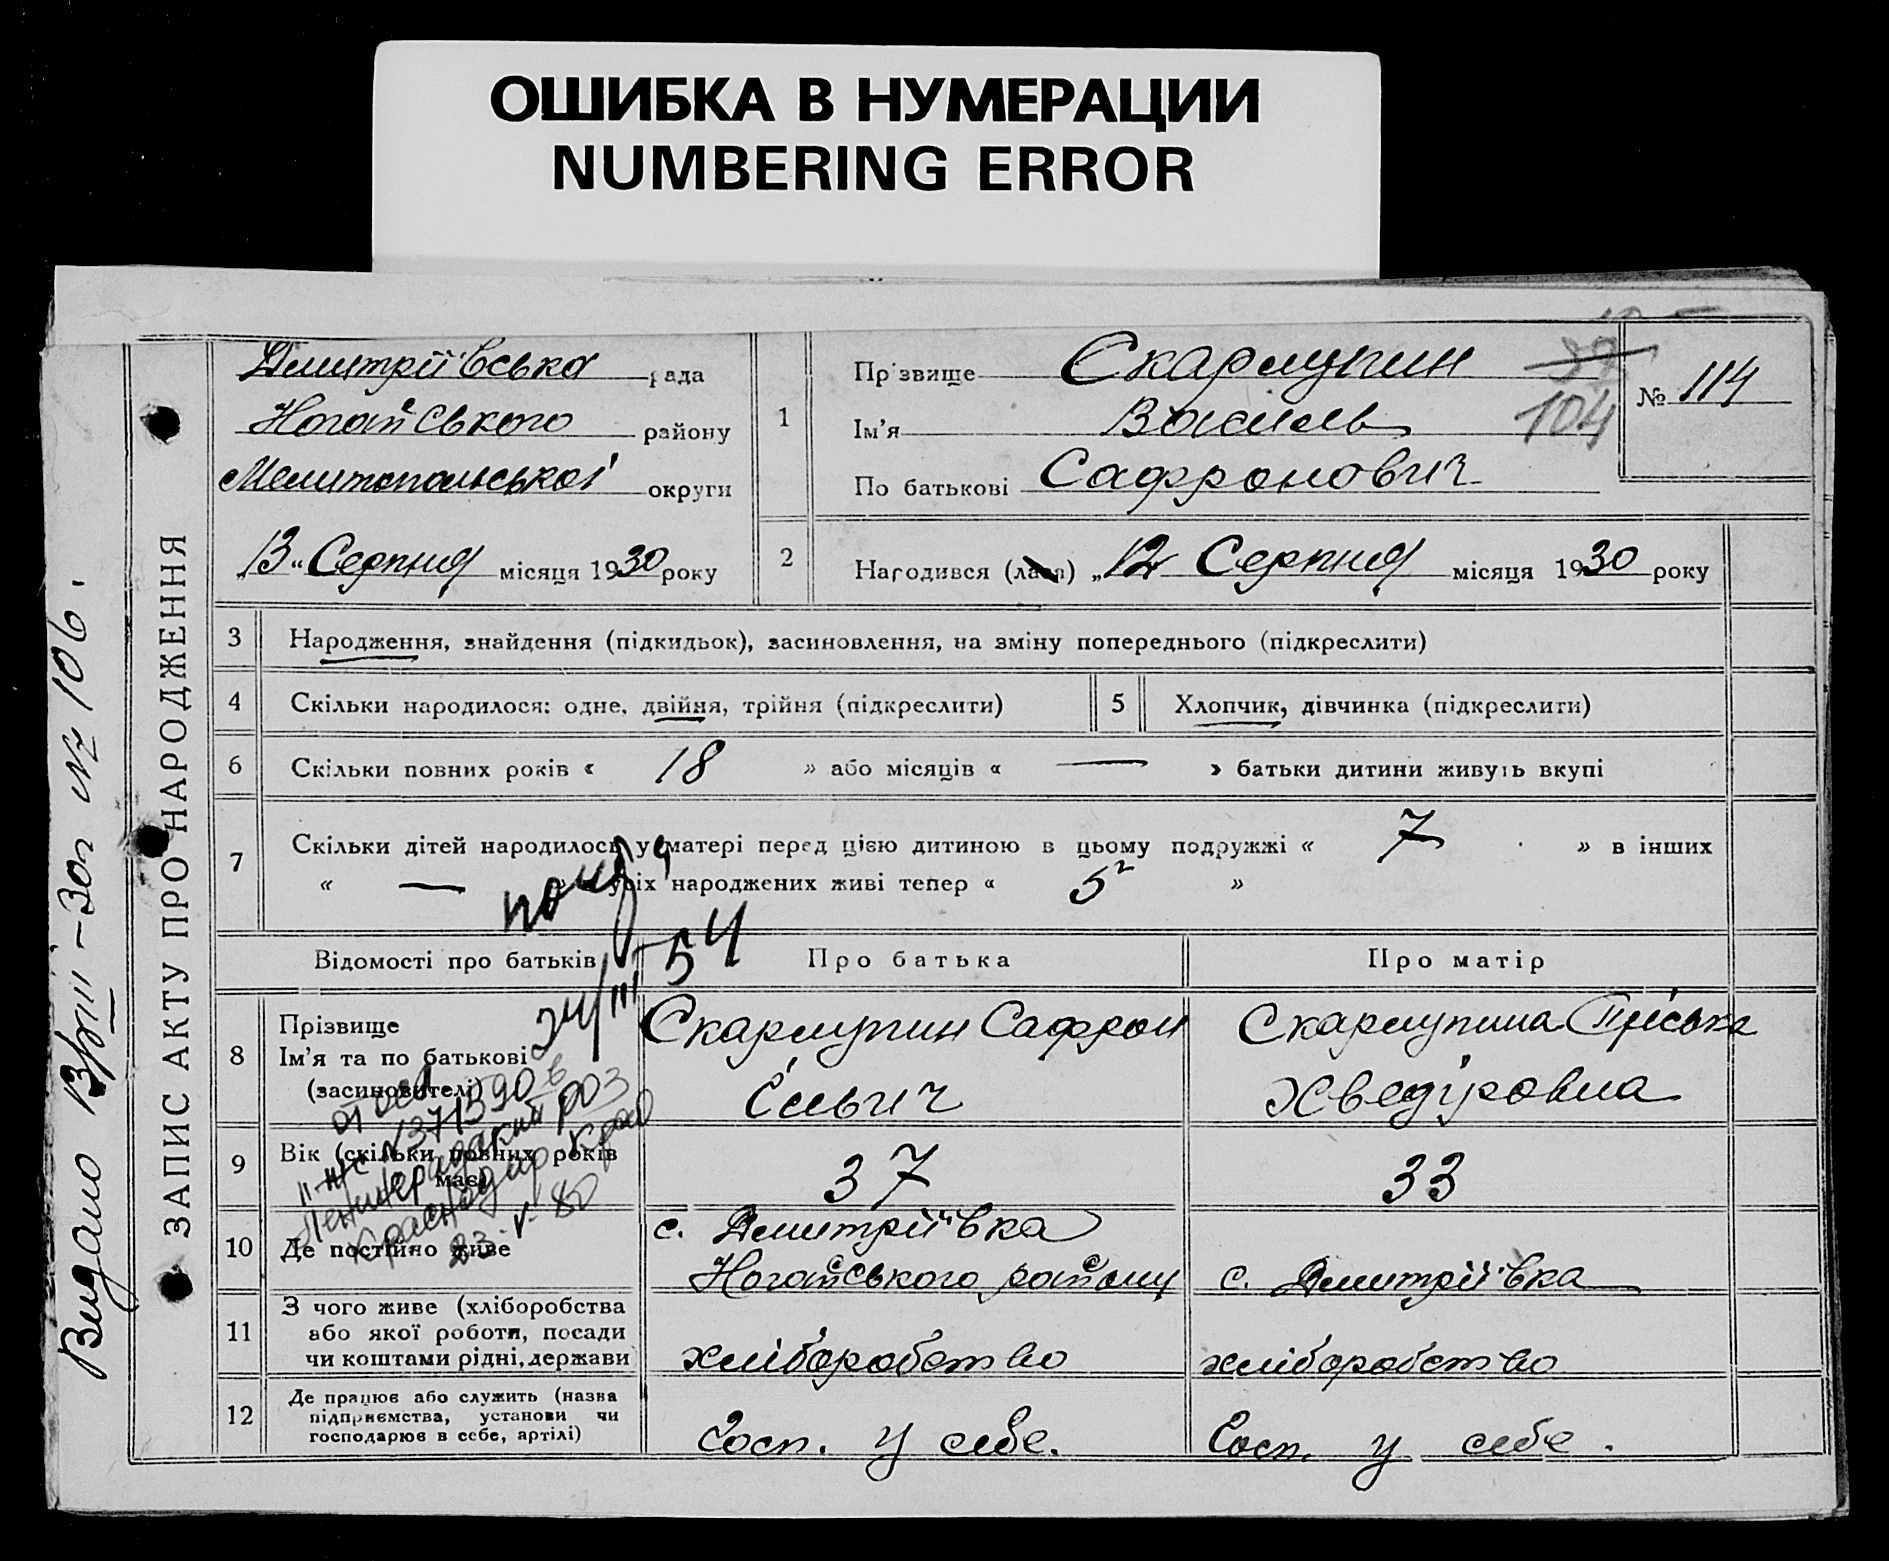 ОШИБКА В НУМЕРАЦИИ
NUMBERING ERROR
ЗАПИС АКТУ ПРО НАРОДЖЕННЯ
Видано 13/VIII – 30 г № 106.
Дмитріївська рада
Ногайського району
Мелитопольської округи
„13“ Серпня місяця 1930 року
1
Прізвище Скарлупин
Ім'я Василь
По батькові Сафронович
104
№ 114
2
Народився (лася) „12 Серпня місяця 1930 року
3 Народження, знайдення (підкидьок), засиновлення, на зміну попереднього (підкреслити)
4 Скільки народилося: одне, двійня, трійня (підкреслити)
5 Хлопчик, дівчинка (підкреслити)
6 Скільки повних років « 18 » або місяців « — » батьки дитини живуть вкупі
7 Скільки дітей народилось у матері перед цією дитиною в цьому подружжі « 7 » в інших
« — » усіх народжених живі тепер « 5 »
24/III 54
Відомості про батьків Про батька Про матір
8 Прізвище
Ім'я та по батькові
(засиновителі)
Скарлупин Сафрон
Скарлупина Пріська
Хведіровна
9 Вік (скільки повних років має)
37 33
10 Де постійно живе
с. Дмитріївка
Ногайського району с. Дмитріївка
23. V. 80
11 З чого живе (хліборобства
або якої роботи, посади
чи коштами рідні, держави
хліборобство хліборобство
12 Де працює або служить (назва
підприємства, установи чи
господарює в себе, артілі)
Госп. у себе. Госп. у себе.